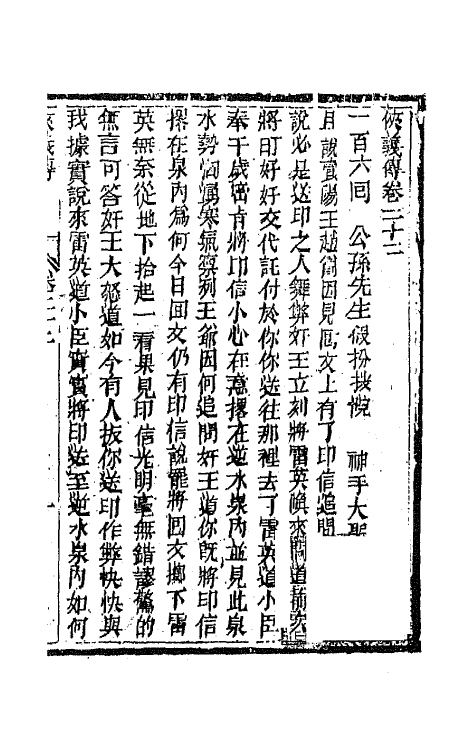 俠義傳卷二十二
一百六回　公孫先生假扮按院　神手大聖
且說襄陽王趙爵因見回文上有了印信追問
說必是送印之人舞弊奸王立刻將雷英喚來問道前次
將印好好交代託付於你你送往那裡去了雷英道小臣
奉千歲密旨將印信小心在意撂在逆水泉內並見此泉
水勢洶湧寒氣凜冽王爺因何追問奸王道你既將印信
撂在泉內為何今日回文仍有印信說罷將回文擲下雷
英無奈從地下拾起一看果見印信光明毫無錯謬驚的
無言可答奸王大怒道如今有人扳你送印作弊快快與
我據實說來雷英道小臣實實將印送至逆水泉內如何